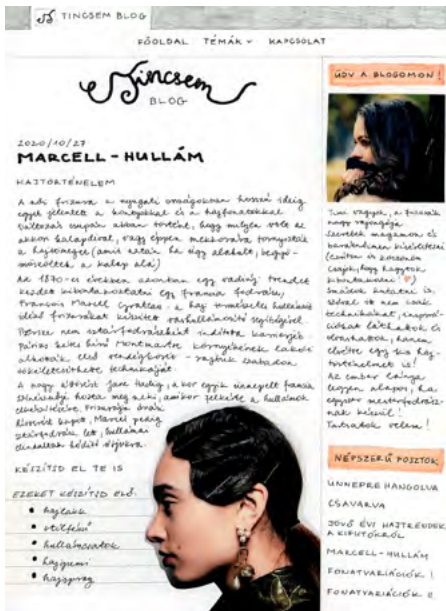 TINCSEM BLOG
FŐOLDAL TÉMÁK KAPCSOLAT
Tincsem
BLOG
2020/10/27
MARCELL-HULLÁM
HAJTÖRTÉNELEM
A női frizura a nyugati országokban hosszú ideig
egyet jelentett a kontyokkal és a hajfonatokkal
változás csupán abban történt, hogy milyen volt az
akkori kalapdivat, vagy éppen mekkorára tornyozták
a hajtömeget (amit aztán ha úgy alakult,
a kalap alá)
Az 1870-es években azonban egy radikális trendet
kezdett kibontakoztatni egy francia fodrász,
François Marcel
készített sütővas segítségével.
Persze nem sztárfodrászként indította karrierjét
Párizs Montmartre környékének lakói
alkották első vendégkörét - rajtuk szabadon
tökéletesíthette technikáját.
A nagy áttörést Jane Hading, a kor egyik ünnepelt francia
színésznője hozta meg neki, amikor felkérte a hullámok
elkészítésére. Frizurája óriási
kapott, Marcel pedig
sztárfodrász lett, hullámai
elindultak hódító útjukra.
KÉSZÍTSD EL TE IS
EZEKET KÉSZÍTSD ELŐ:
• hajlakk
•
• hullámcsatok
• hajgumi
• hajspray
ÜDV A BLOGOMON!
Timi vagyok, a frizurák
nagy rajongója
Szeretek magamon és
barátnőimen kísérletezni
(ezúton is köszönöm
csajok, hogy hagytok
kibontakozni ♥)
Imádok kutatni is,
szóval itt nem csak
technikákat, inspirá-
ciókat láthattok és
olvashattok, hanem
elvétve egy kis haj-
történelmet is!
Az ember lánya
legyen alapos, ha
egyszer mesterfodrász-
nak készül!
Tartsatok velem!
NÉPSZERŰ POSZTOK:
ÜNNEPRE HANGOLVA
CSAVARVA
JÖVŐ ÉVI HAJTRENDEK
A KIFUTÓKRÓL
MARCELL-HULLÁM
FONATVARIÁCIÓK I
FONATVARIÁCIÓK II